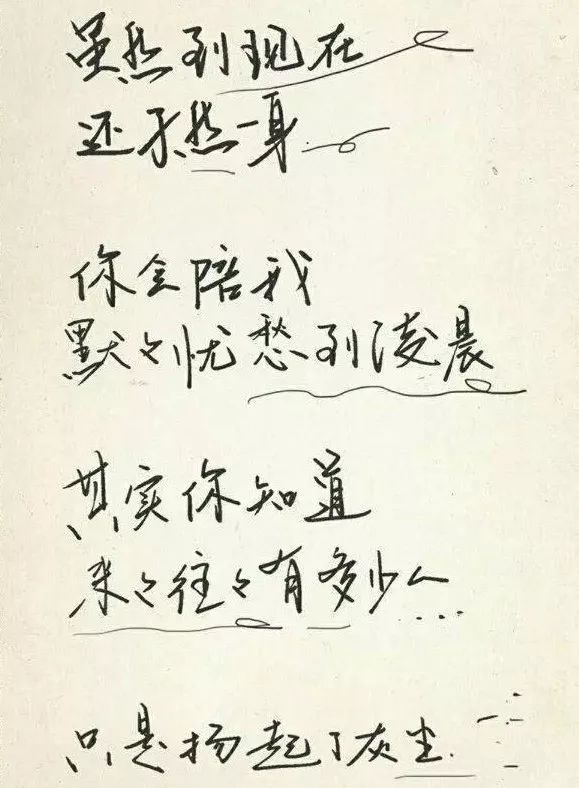 虽然到现在
还孑然一身
你会陪我
默々忧愁到凌晨
其实你知道
来々往々有多少人...
只是扬起了灰尘.